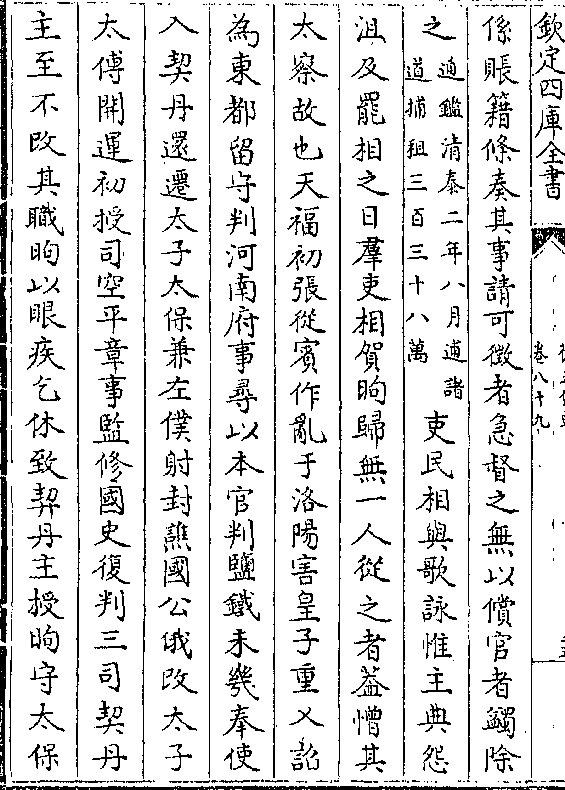 欽定四庫全書
卷八十九
係賬籍條奏其事請可徵者急督之無以償官者蠲除
之
通鑑清泰二年八月逋諸
道捕租三百三十八萬
吏民相與歌詠惟主典怨
沮及罷相之日羣吏相賀昫歸無一人從之者葢憎其
太察故也天福初張從賓作亂于洛陽害皇子重乂詔
為東都留守判河南府事尋以本官判鹽鐵未幾奉使
入契丹還遷太子太保兼左僕射封譙國公俄改太子
太傅開運初授司空平章事監修國史復判三司契丹
主至不改其職昫以眼疾乞休致契丹主授昫守太保